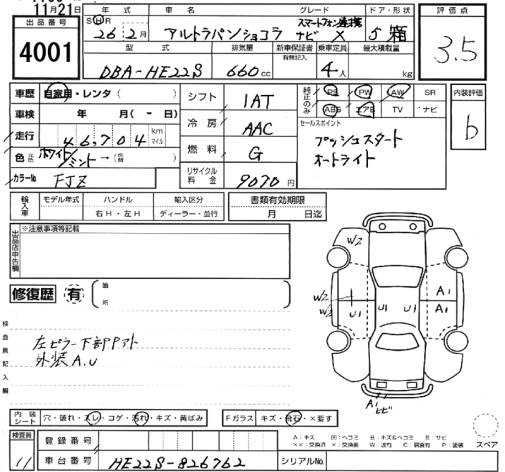 11月21日
出品番号
4001
年式 車名 グレード ドア・形状
S H R 26年2月 アルトラパンショコラ スマートフォン連携ナビ X 5 箱
型式 排気量 新車保証書 乗車定員 最大積載量
有無記入
DBA-HE22S 660cc 4人 kg
評価点
3.5
車歴 自家用・レンタ( )
車検 年 月( - 日)
走行 46,704 km マイル
色 ホワイト/ミント→( )
カラーNo FJZ
シフト IAT
冷房 AAC
燃料 G
リサイクル料金 9070円
純正のみ PS PW AW SR
ABS エアB TV ナビ
セールスポイント
プッシュスタート
オートライト
内装評価
b
輸入車 モデル年式 ハンドル 輸入区分
右H・左H ディーラー・並行
書類有効期限
月 日迄
出品店申告欄
※注意事項等記載
修復歴 有 箇所
検査員記入欄
左ピラー下部Pアト
外装A.U
W2
W2
W2
U1 U1 U1
A1
A1
A1
ヒビ
内装シート 穴・破れ・スレ・コゲ・汚れ・キズ・黄ばみ
Fガラス キズ・飛石・×要す
検査員
11
登録番号
車台番号 HE22S-826762
シリアルNo.
A:キズ U:ヘコミ B:キズ&ヘコミ S:サビ
××:交換済 ×:交換 W:波 C:腐食有 P:塗装
スペア